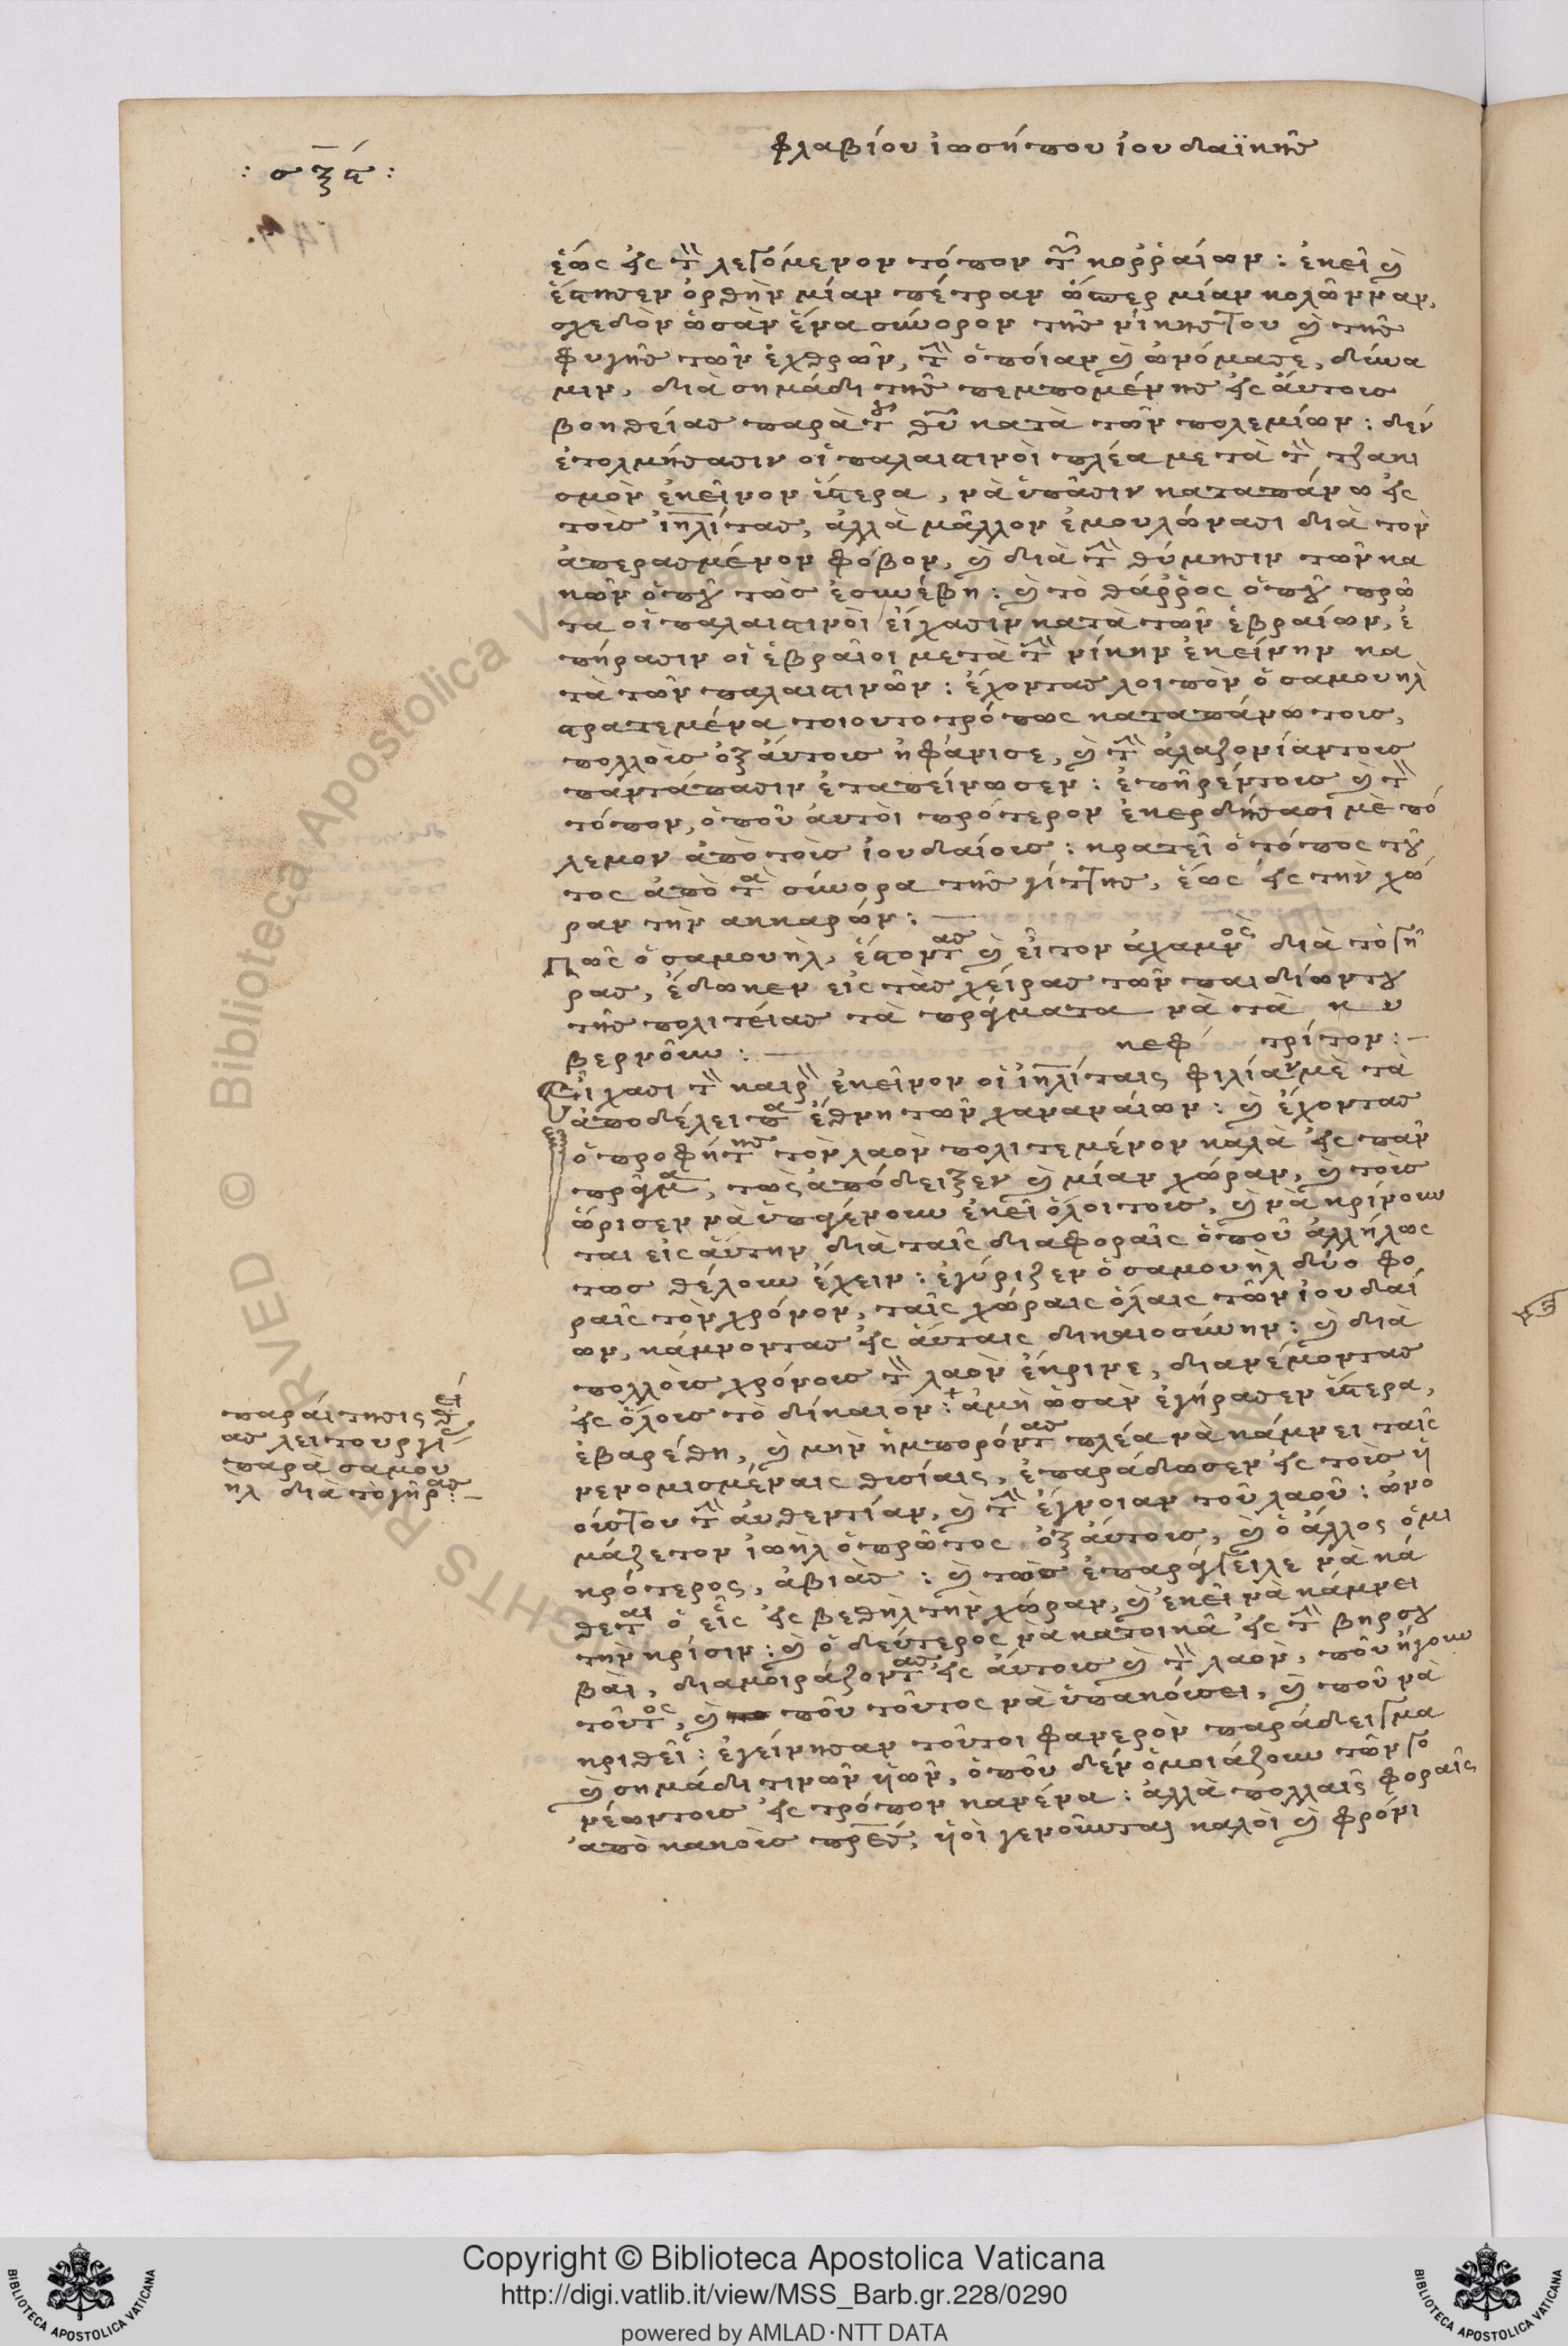 φλαβίου ἰωσήπου ἰουδαϊκῆς
: σξϛ :
ἕως εἰς τὸν λεγόμενον τόπον τῶν κορῥαίων : ἐκεῖ καὶ
ἔστησεν ὀρθὴν μίαν πέτραν ὥσπερ μίαν κολῶνναν,
σχεδὸν ὡσὰν ἕνα σύνορον τῆς νίκης του καὶ τῆς
φυγῆς τῶν ἐχθρῶν, τὴν ὁποίαν καὶ ὠνόμασε, δύνα
μιν, διὰ σημάδι τῆς πεμπομένης εἰς αὐτοὺς
βοηθείας παρὰ τοῦ θῦ κατὰ τῶν πολεμίων : δὲν
ἐτολμήσασιν οἱ παλαιστινοὶ πλέα μετὰ τὸν τζακι
σμὸν ἐκεῖνον ὕστερα, νὰ ὑπᾶσιν καταπάνω εἰς
τοὺς ἰηλίτας, ἀλλὰ μᾶλλον ἐμουλώνασι διὰ τὸν
ἀπερασμένον φόβον, καὶ διὰ τὴν θύμησιν τῶν κα
κῶν ὁποῦ τοὺς ἐσυνέβη : καὶ τὸ θάῤῥος ὁποῦ πρῶ
τα οἱ παλαιστινοὶ εἴχασιν κατὰ τῶν ἑβραίων, ἐ
πήρασιν οἱ ἑβραῖοι μετὰ τὴν νίκην ἐκείνην κα
τὰ τῶν παλαιστινῶν : ἔχοντας λοιπὸν ὁ σαμουὴλ
στρατεμένα τοιουτοτρόπως καταπάνω τους,
πολλοὺς ἐξ αὐτοὺς ἠφάνισε, καὶ τὴν ἀλαζονίαν τους
παντάπασιν ἐταπείνωσεν : ἐπῆρέν τους καὶ τὸν
τόπον, ὁποῦ αὐτοὶ πρότερον ἐκερδήσασι μὲ πό
λεμον ἀπὸ τοὺς ἰουδαίους : κρατεῖ ὁ τόπος τοῦ
τος ἀπὸ τὰ σύνορα τῆς γίττης, ἕως εἰς τὴν χώ
ραν τὴν ακκαρών : —
Πῶς ὁ σαμουὴλ, ἔστοντας καὶ εἶτον ἀχαμνὸς διὰ τὸ γῆ
ρας, ἔδωκεν εἰς τὰς χεῖρας τῶν παιδίων του
τῆς πολιτείας τὰ πράγματα νὰ τὰ κυ
βερνοῦν : — κεφ τρίτον : —
Εἴχασι τὸν καιρὸν ἐκεῖνον οἱ ἰηλίταις φιλίαν μὲ τὰ
ἀποδέλειπα ἔθνη τῶν χαναναίων : καὶ ἔχοντας
ὁ προφήτης τὸν λαὸν πολιτεμένον καλὰ εἰς πᾶν
πρᾶγμα, τοὺς ἀπόδειξεν καὶ μίαν χώραν, καὶ τοὺς
ὥρισεν νὰ ὑπαγένουν ἐκεῖ ὅλοι τους, καὶ νὰ κρίνουν
ται εἰς αὐτὴν διὰ ταῖς διαφοραῖς ὁποῦ ἀλλήλως
τως θέλουν ἔχειν : ἐγύριζεν ὁ σαμουὴλ δύο φο
ραῖς τὸν χρόνον, ταῖς χώραις ὅλαις τῶν ἰουδαί
ων, κάμνοντας εἰς αὐταις δικαιοσύνην : καὶ διὰ
πολλοὺς χρόνους τὸν λαὸν ἔκρινε, διανέμοντας
εἰς ὅλους τὸ δίκαιον : ἀμὴ ὡσὰν ἐγήρασεν ὕστερα,
ἐβαρέθη, καὶ μὴν ἠμπορόντας πλέα νὰ κάμνει ταῖς
νενομισμέναις θυσίαις, ἐπαράδωσεν εἰς τοὺς ὑ
ούς του τὴν αὐθεντίαν, καὶ τὴν ἔγνοιαν τοῦ λαοῦ : ὠνο
μάζετον ἰωὴλ ὁ πρῶτος ἐξ αὐτους, καὶ ὁ ἄλλος ὁ μι
κρότερος, ἀβιὰς : καὶ τοὺς ἐπαράγγειλε νὰ κά
θεται ὁ εἷς εἰς βεθὴλ τὴν χώραν, καὶ ἐκεῖ νὰ κάμνει
τὴν κρίσιν : καὶ ὁ δεύτερος νὰ κατοικᾶ εἰς τὴν βηρσου
βὰι, διαμοιράζοντας εἰς αὐτους καὶ τὸν λαὸν, ποῦ ἤγουν
τοῦτος, καὶ ποῦ τοῦτος νὰ ὑπακούσει, καὶ ποῦ νὰ
κριθεῖ : ἐγείνησαν τοῦτοι φανερὸν παράδειγμα
καὶ σημάδι τινῶν ὑῶν, ὁποῦ δὲν ὁμοιάζουν τῶν γο
νέων τους εἰς τρόπον κανένα : ἀλλὰ πολλαῖς φοραῖς
ἀπὸ κακοὺς πρες, ὑοὶ γενοῦνται καλοὶ καὶ φρόνι
παραίτησις θεί
ας λειτουργί
παρὰ σαμου
ηλ διὰ τὸ γῆρας : —
Copyright © Biblioteca Apostolica Vaticana
http://digi.vatlib.it/view/MSS_Barb.gr.228/0290
powered by AMLAD·NTT DATA
BIBLIOTECA APOSTOLICA VATICANA
BIBLIOTECA APOSTOLICA VATICANA